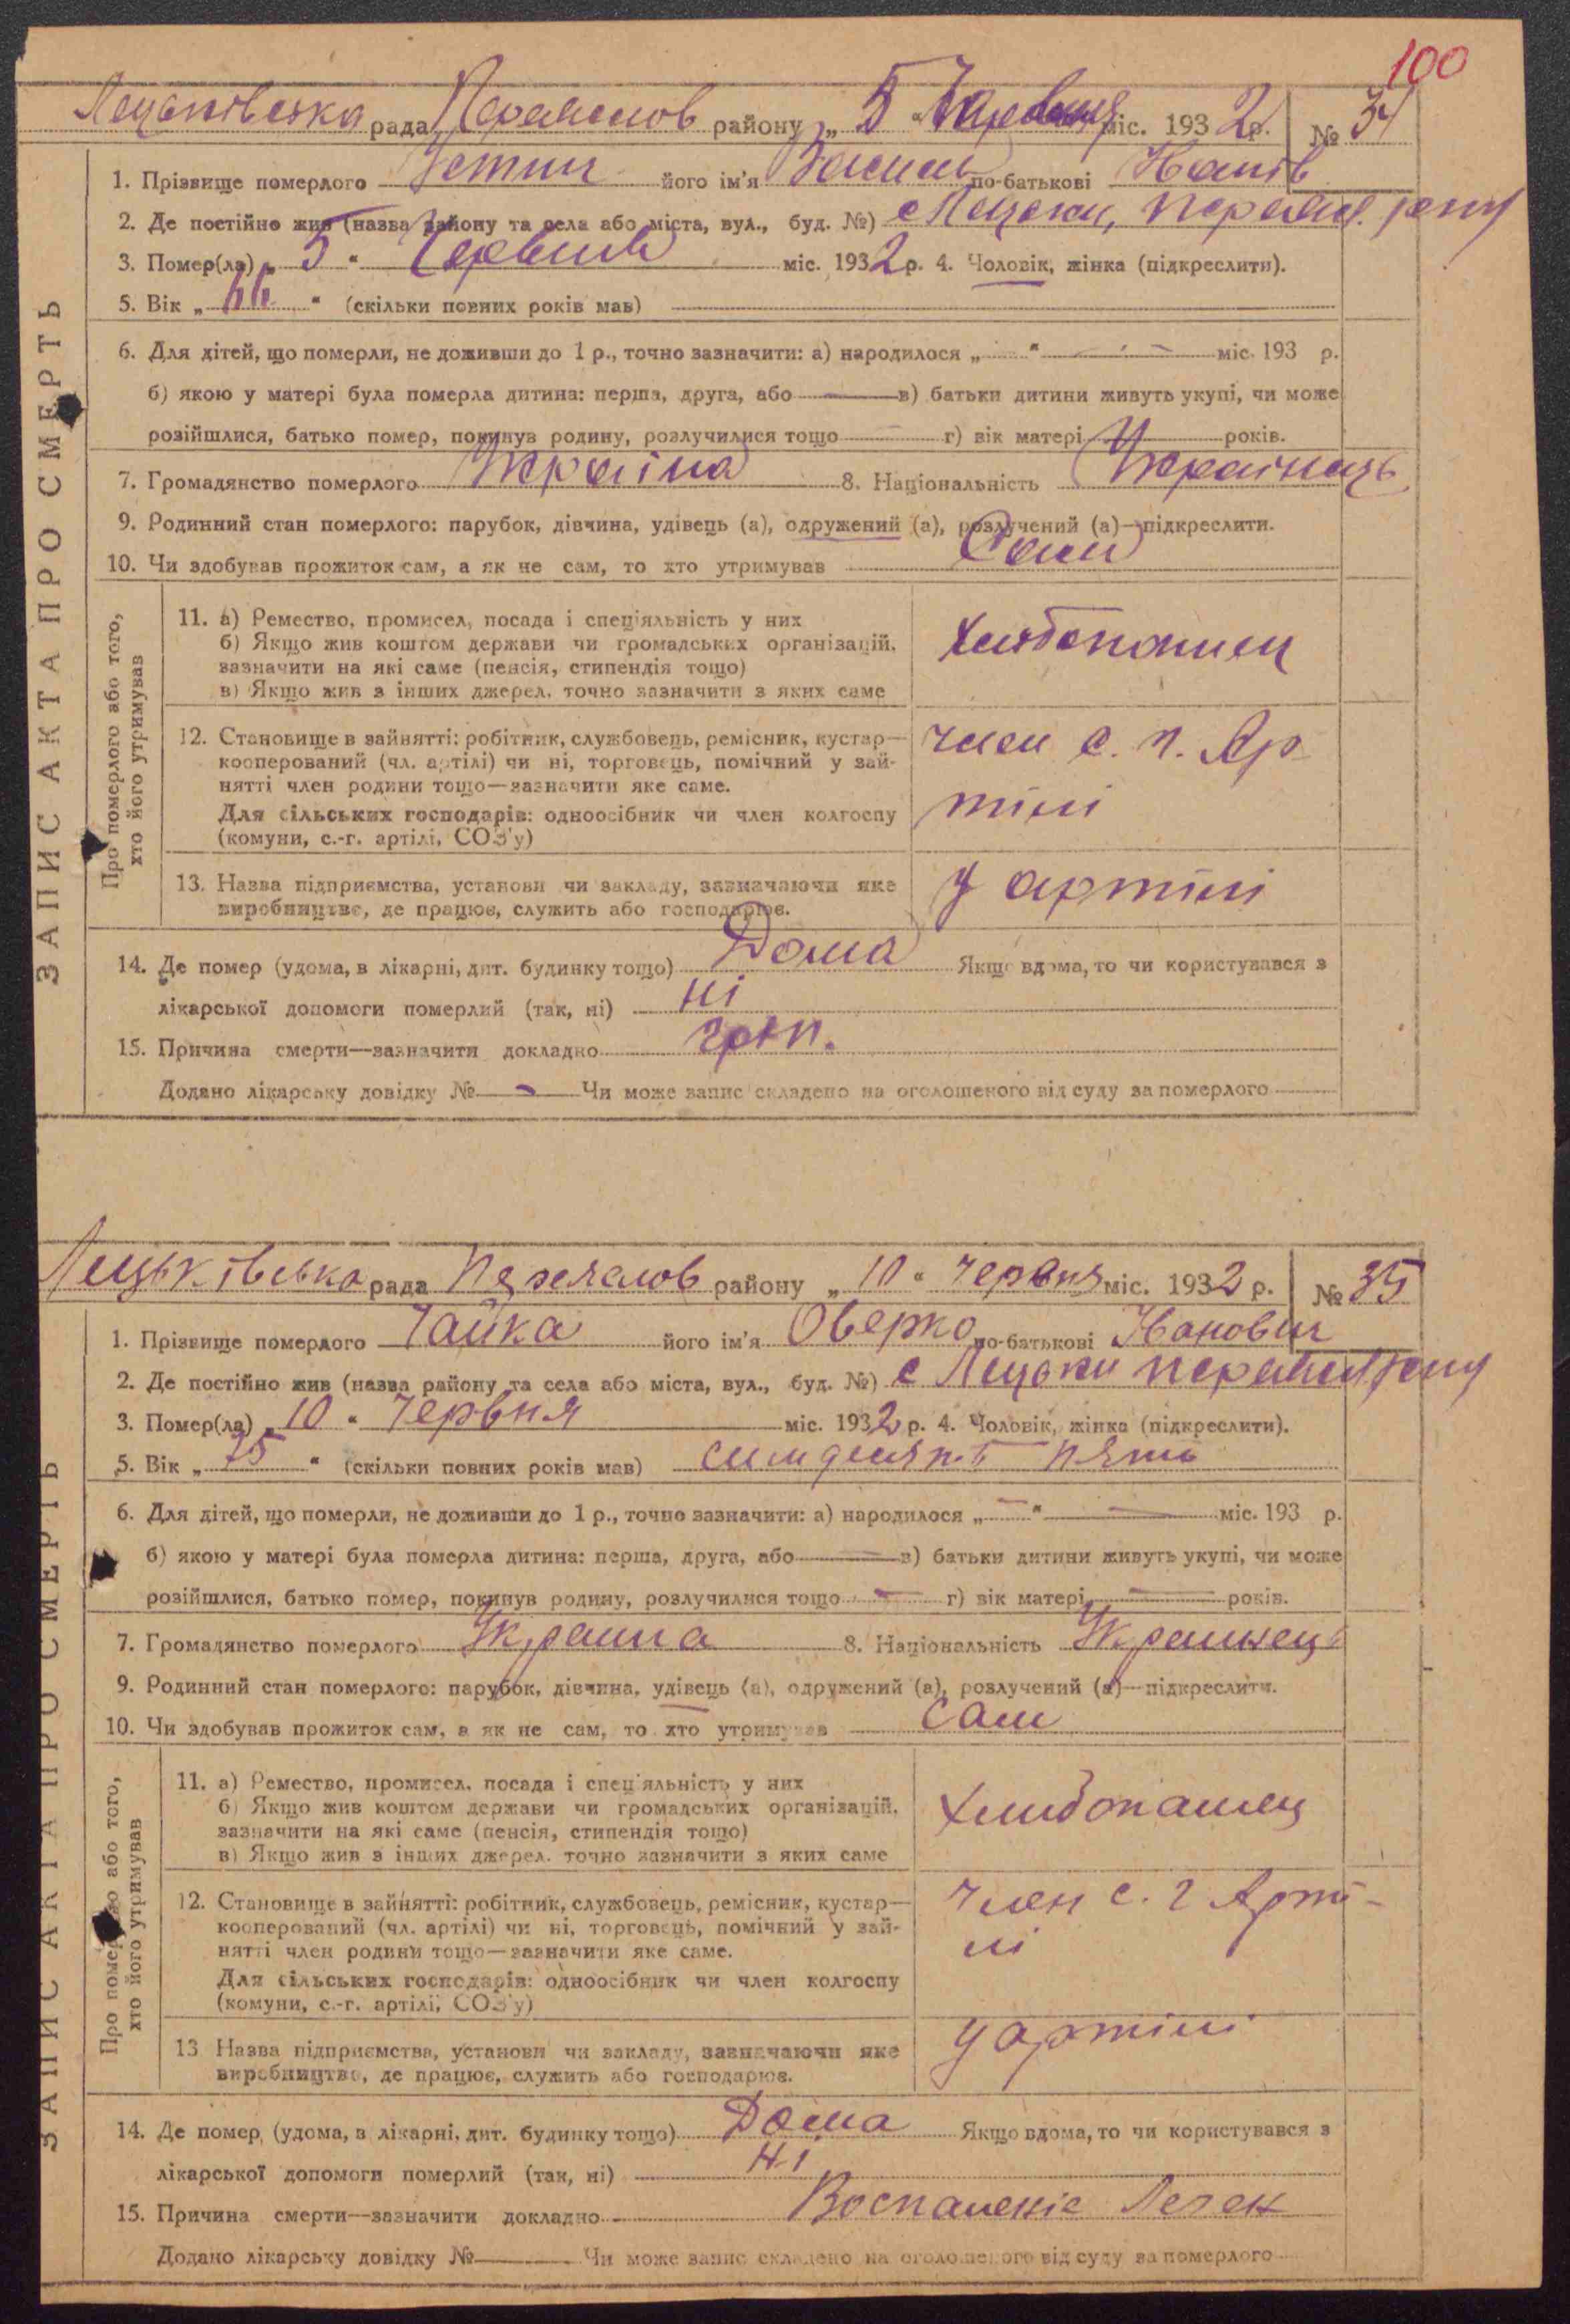 100
Лецьківська рада Переяслов району „ 5 “ Червня міс. 1932 р. № 34
1. Прізвище померлого Устич його ім'я Василь по-батькові
2. Де постійно жив (назва району та села або міста, вул., буд. №) с Лецьки, Переясл. рену
3. Помер(ла) „ 5 “ Червня міс. 1932 р. 4. Чоловік, жінка (підкреслити).
5. Вік „ 66 “ (скільки повних років мав)
6. Для дітей, що померли, не доживши до 1 р., точно зазначити: а) народилося „ — “ — міс. 193 р.
б) якою у матері була померла дитина: перша, друга, або — в) батьки дитини живуть укупі, чи може
розійшлися, батько помер, покинув родину, розлучилися тощо — г) вік матері — років.
7. Громадянство померлого Україна 8. Національність Українець
9. Родинний стан померлого: парубок, дівчина, удівець (а), одружений (а), розлучений (а)—підкреслити.
10. Чи здобував прожиток сам, а як не сам, то хто утримував Сам
ЗАПИС АКТА ПРО СМЕРТЬ
Про померлого або того,
хто його утримував
11. а) Ремество, промисел, посада і спец'яльність у них
б) Якщо жив коштом держави чи громадських організацій,
зазначити на які саме (пенсія, стипендія тощо)
в) Якщо жив з інших джерел, точно зазначити з яких саме
Хлібопашец
12. Становище в зайнятті: робітник, службовець, ремісник, кустар—
кооперований (чл. артілі) чи ні, торговець, помічний у зай-
нятті член родини тощо—зазначити яке саме.
Для сільських господарів: одноосібник чи член колгоспу
(комуни, с.-г. артілі, СОЗ'у)
член с. г. Ар
тілі
13. Назва підприємства, установи чи закладу, зазначаючи яке
виробництво, де працює, служить або господарює.
У артілі
14. Де помер (удома, в лікарні, дит. будинку тощо) Дома Якщо вдома, то чи користувався з
лікарської допомоги померлий (так, ні) ні
15. Причина смерти—зазначити докладно гріп.
Додано лікарську довідку № — Чи може запис складено на оголошеного від суду за померлого
Лецьківська рада Переяслов району „ 10 “ Червня міс. 1932 р. № 35
1. Прізвище померлого Чайка його ім'я Оверко по-батькові Іванович
2. Де постійно жив (назва району та села або міста, вул., буд. №) с Лецьки Переясл рену
3. Помер(ла) „ 10 “ Червня міс. 1932 р. 4. Чоловік, жінка (підкреслити).
5. Вік „ 75 “ (скільки повних років мав) симдисят пять
6. Для дітей, що померли, не доживши до 1 р., точно зазначити: а) народилося „ — “ — міс. 193 р.
б) якою у матері була померла дитина: перша, друга, або — в) батьки дитини живуть укупі, чи може
розійшлися, батько помер, покинув родину, розлучилися тощо — г) вік матері — років.
7. Громадянство померлого Украина 8. Національність Украинець
9. Родинний стан померлого: парубок, дівчина, удівець (а), одружений (а), розлучений (а)—підкреслити.
10. Чи здобував прожиток сам, а як не сам, то хто утримував сам
ЗАПИС АКТА ПРО СМЕРТЬ
Про померлого або того,
хто його утримував
11. а) Ремество, промисел, посада і спец'яльність у них
б) Якщо жив коштом держави чи громадських організацій,
зазначити на які саме (пенсія, стипендія тощо)
в) Якщо жив з інших джерел, точно зазначити з яких саме
Хлибопашец
12. Становище в зайнятті: робітник, службовець, ремісник, кустар—
кооперований (чл. артілі) чи ні, торговець, помічний у зай-
нятті член родини тощо—зазначити яке саме.
Для сільських господарів: одноосібник чи член колгоспу
(комуни, с.-г. артілі, СОЗ'у)
Член с. г Арті-
лі
13 Назва підприємства, установи чи закладу, зазначаючи яке
виробництво, де працює, служить або господарює.
у артілі
14. Де помер (удома, в лікарні, дит. будинку тощо) Дома Якщо вдома, то чи користувався з
лікарської допомоги померлий (так, ні) Ні
15. Причина смерти—зазначити докладно Воспаленіе Легек
Додано лікарську довідку № Чи може запис складено на оголошеного від суду за померлого